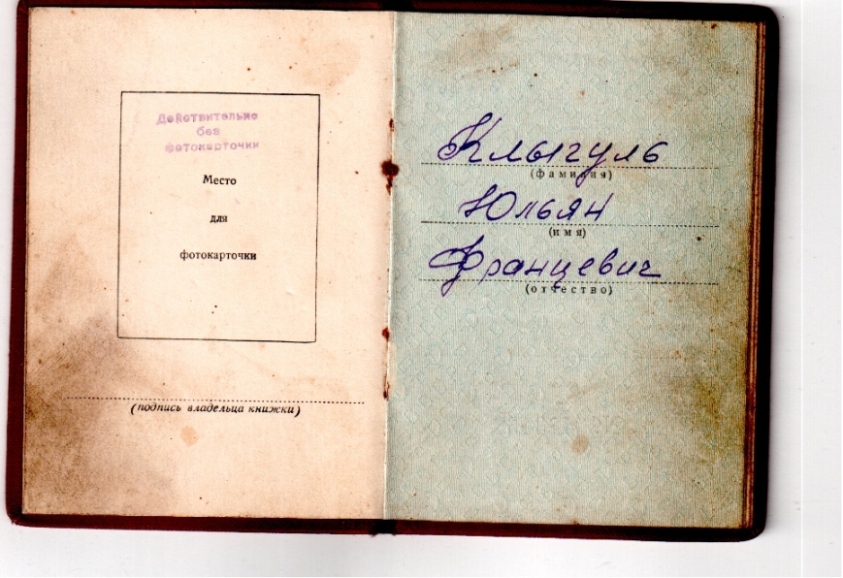 Действительно
без
фотокарточки
Место
для
фотокарточки
(подпись владельца книжки)
Клыгуль
(фамилия)
Юльян
(имя)
Францевич
(отчество)